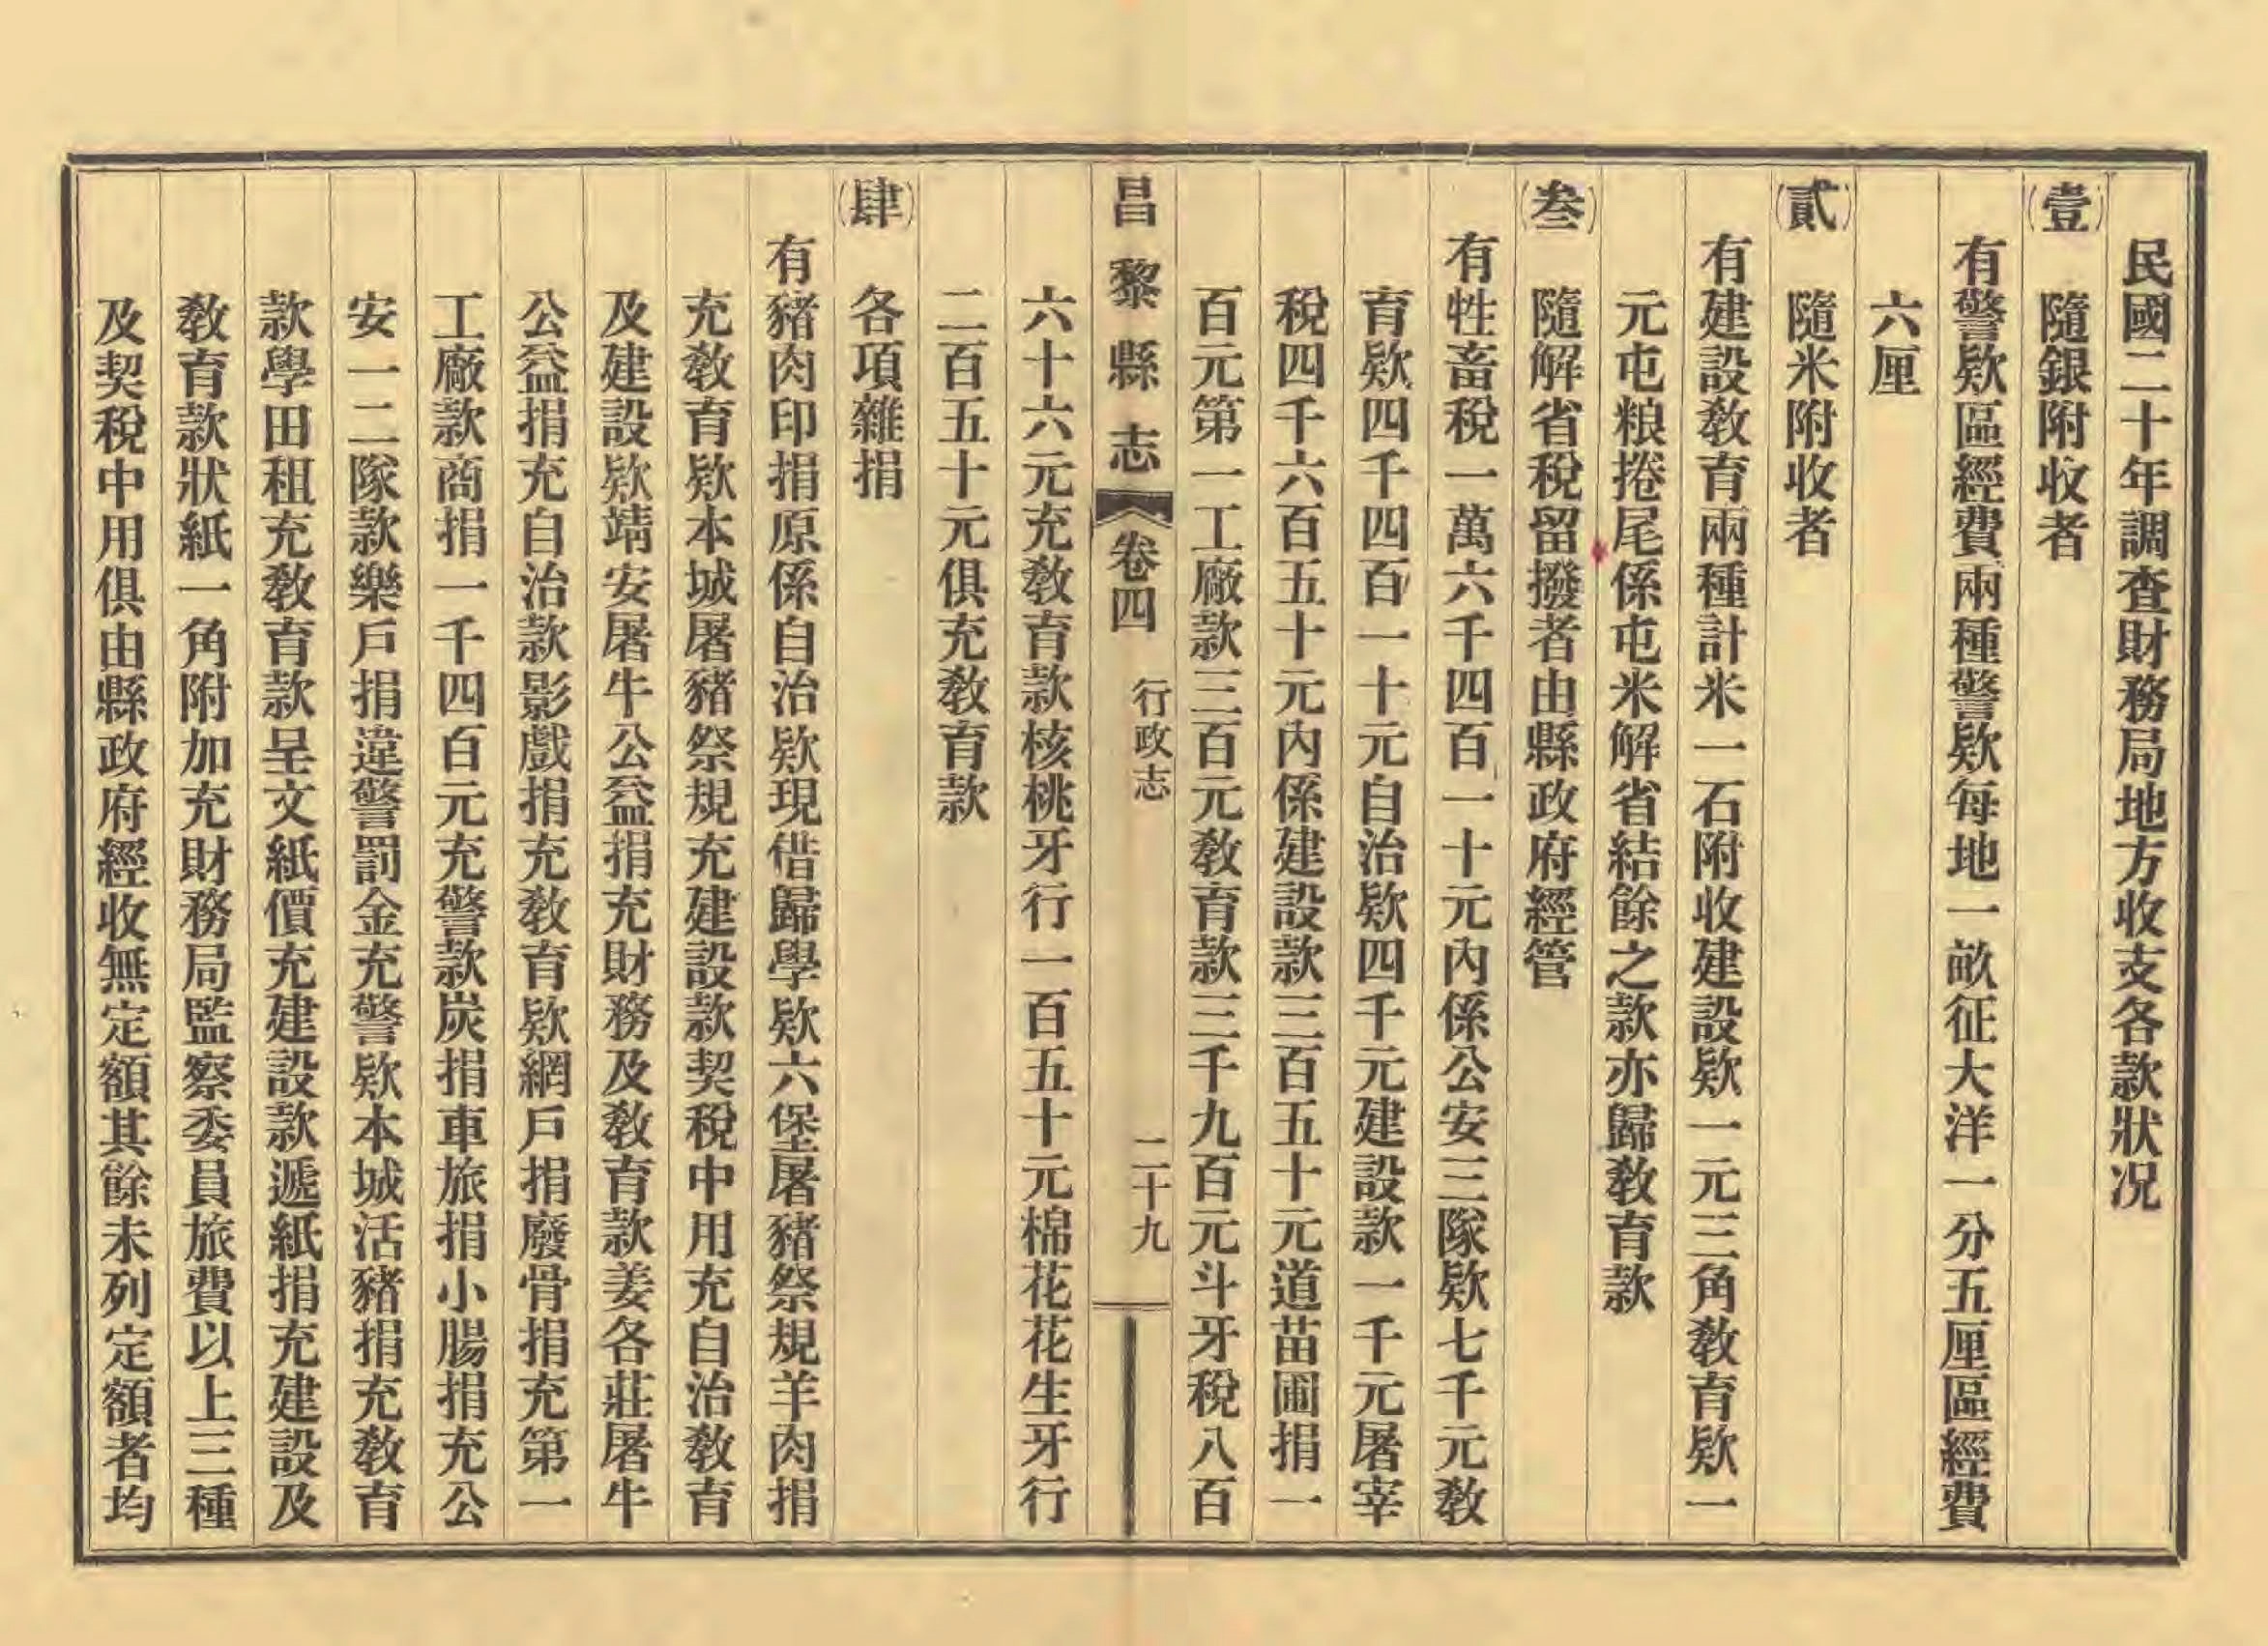 民國二十年調查財務局地方收支各款狀况
(壹)隨銀附收者
有警欵區經費兩種警欵每地一畝征大洋一分五厘區經費
六厘
(貳)隨米附收者
有建設敎育兩種計米一石附收建設欵一元三角敎育欵一
元屯粮捲尾係屯米解省結餘之款亦歸敎育款
(叁)隨解省稅留撥者由縣政府經管
有牲畜稅一萬六千四百一十元內係公安三隊欵七千元敎
育欵四千四百一十元自治欵四千元建設款一千元屠宰
稅四千六百五十元內係建設款三百五十元道苗圃捐一
百元第一工廠款三百元敎育款三千九百元斗牙稅八百
昌黎縣志 卷四 行政志 二十九
六十六元充敎育款核桃牙行一百五十元棉花花生牙行
二百五十元俱充敎育款
(肆)各項雜捐
有豬肉印捐原係自治欵現借歸學欵六堡屠豬祭規羊肉捐
充敎育欵本城屠豬祭規充建設款契稅中用充自治敎育
及建設欵靖安屠牛公益捐充財務及敎育款姜各莊屠牛
公益捐充自治款影戲捐充敎育欵網戶捐廢骨捐充第一
工廠款商捐一千四百元充警款炭捐車旅捐小腸捐充公
安一二隊款樂戶捐違警罰金充警欵本城活豬捐充敎育
款學田租充敎育款呈文紙價充建設款遞紙捐充建設及
敎育款狀紙一角附加充財務局監察委員旅費以上三種
及契稅中用俱由縣政府經收無定額其餘未列定額者均